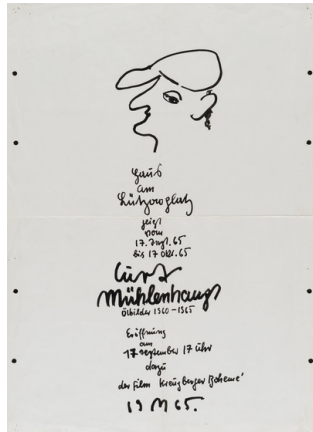 Haus
am
Lützowplatz
zeigt
vom
17. Sept. 65
bis 17 Okt. 65
Curt
Mühlenhaupt
Ölbilder 1960-1965
Eröffnung
am
17 september 17 Uhr
dazu
der Film Kreuzberger Boheme'
1965.